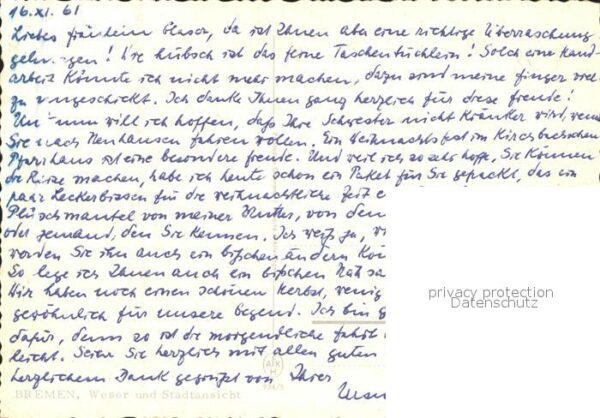 16.XI.61
Liebes Fräulein Glaser, da ist Ihnen aber eine richtige Überraschung
gelungen! Wie hübsch ist das feine Taschentüchlein! Solch eine Hand-
arbeit könnte ich nicht mehr machen, dazu sind meine Finger viel
zu ungeschickt. Ich danke Ihnen ganz herzlich für diese Freude!
Und nun will ich hoffen, daß Ihre Schwester nicht kränker wird, wenn
Sie nach Neuhausen fahren wollen. Ein Weihnachtsfest im
Pfarrhaus ist eine besondere Freude. Und weil ich so sehr hoffe, Sie können
die Reise machen, habe ich heute schon ein Paket für Sie gepackt, das ein
paar Leckerbissen für die weihnachtliche Zeit
Plüschmantel von meiner Mutter, von dem
oder jemand, den Sie kennen. Ich weiß ja,
werden Sie ihn auch ein bißchen ändern
So lege ich Ihnen auch ein bißchen
Wir haben noch einen schönen Herbst, wenig
gewöhnlich für unsere Gegend. Ich bin
dafür, denn so ist die morgendliche Fahrt
leicht. Seien Sie herzlich mit allen guten
herzlichem Dank gegrüßt von Ihrer
privacy protection
Datenschutz
BREMEN, Weser und Stadtansicht